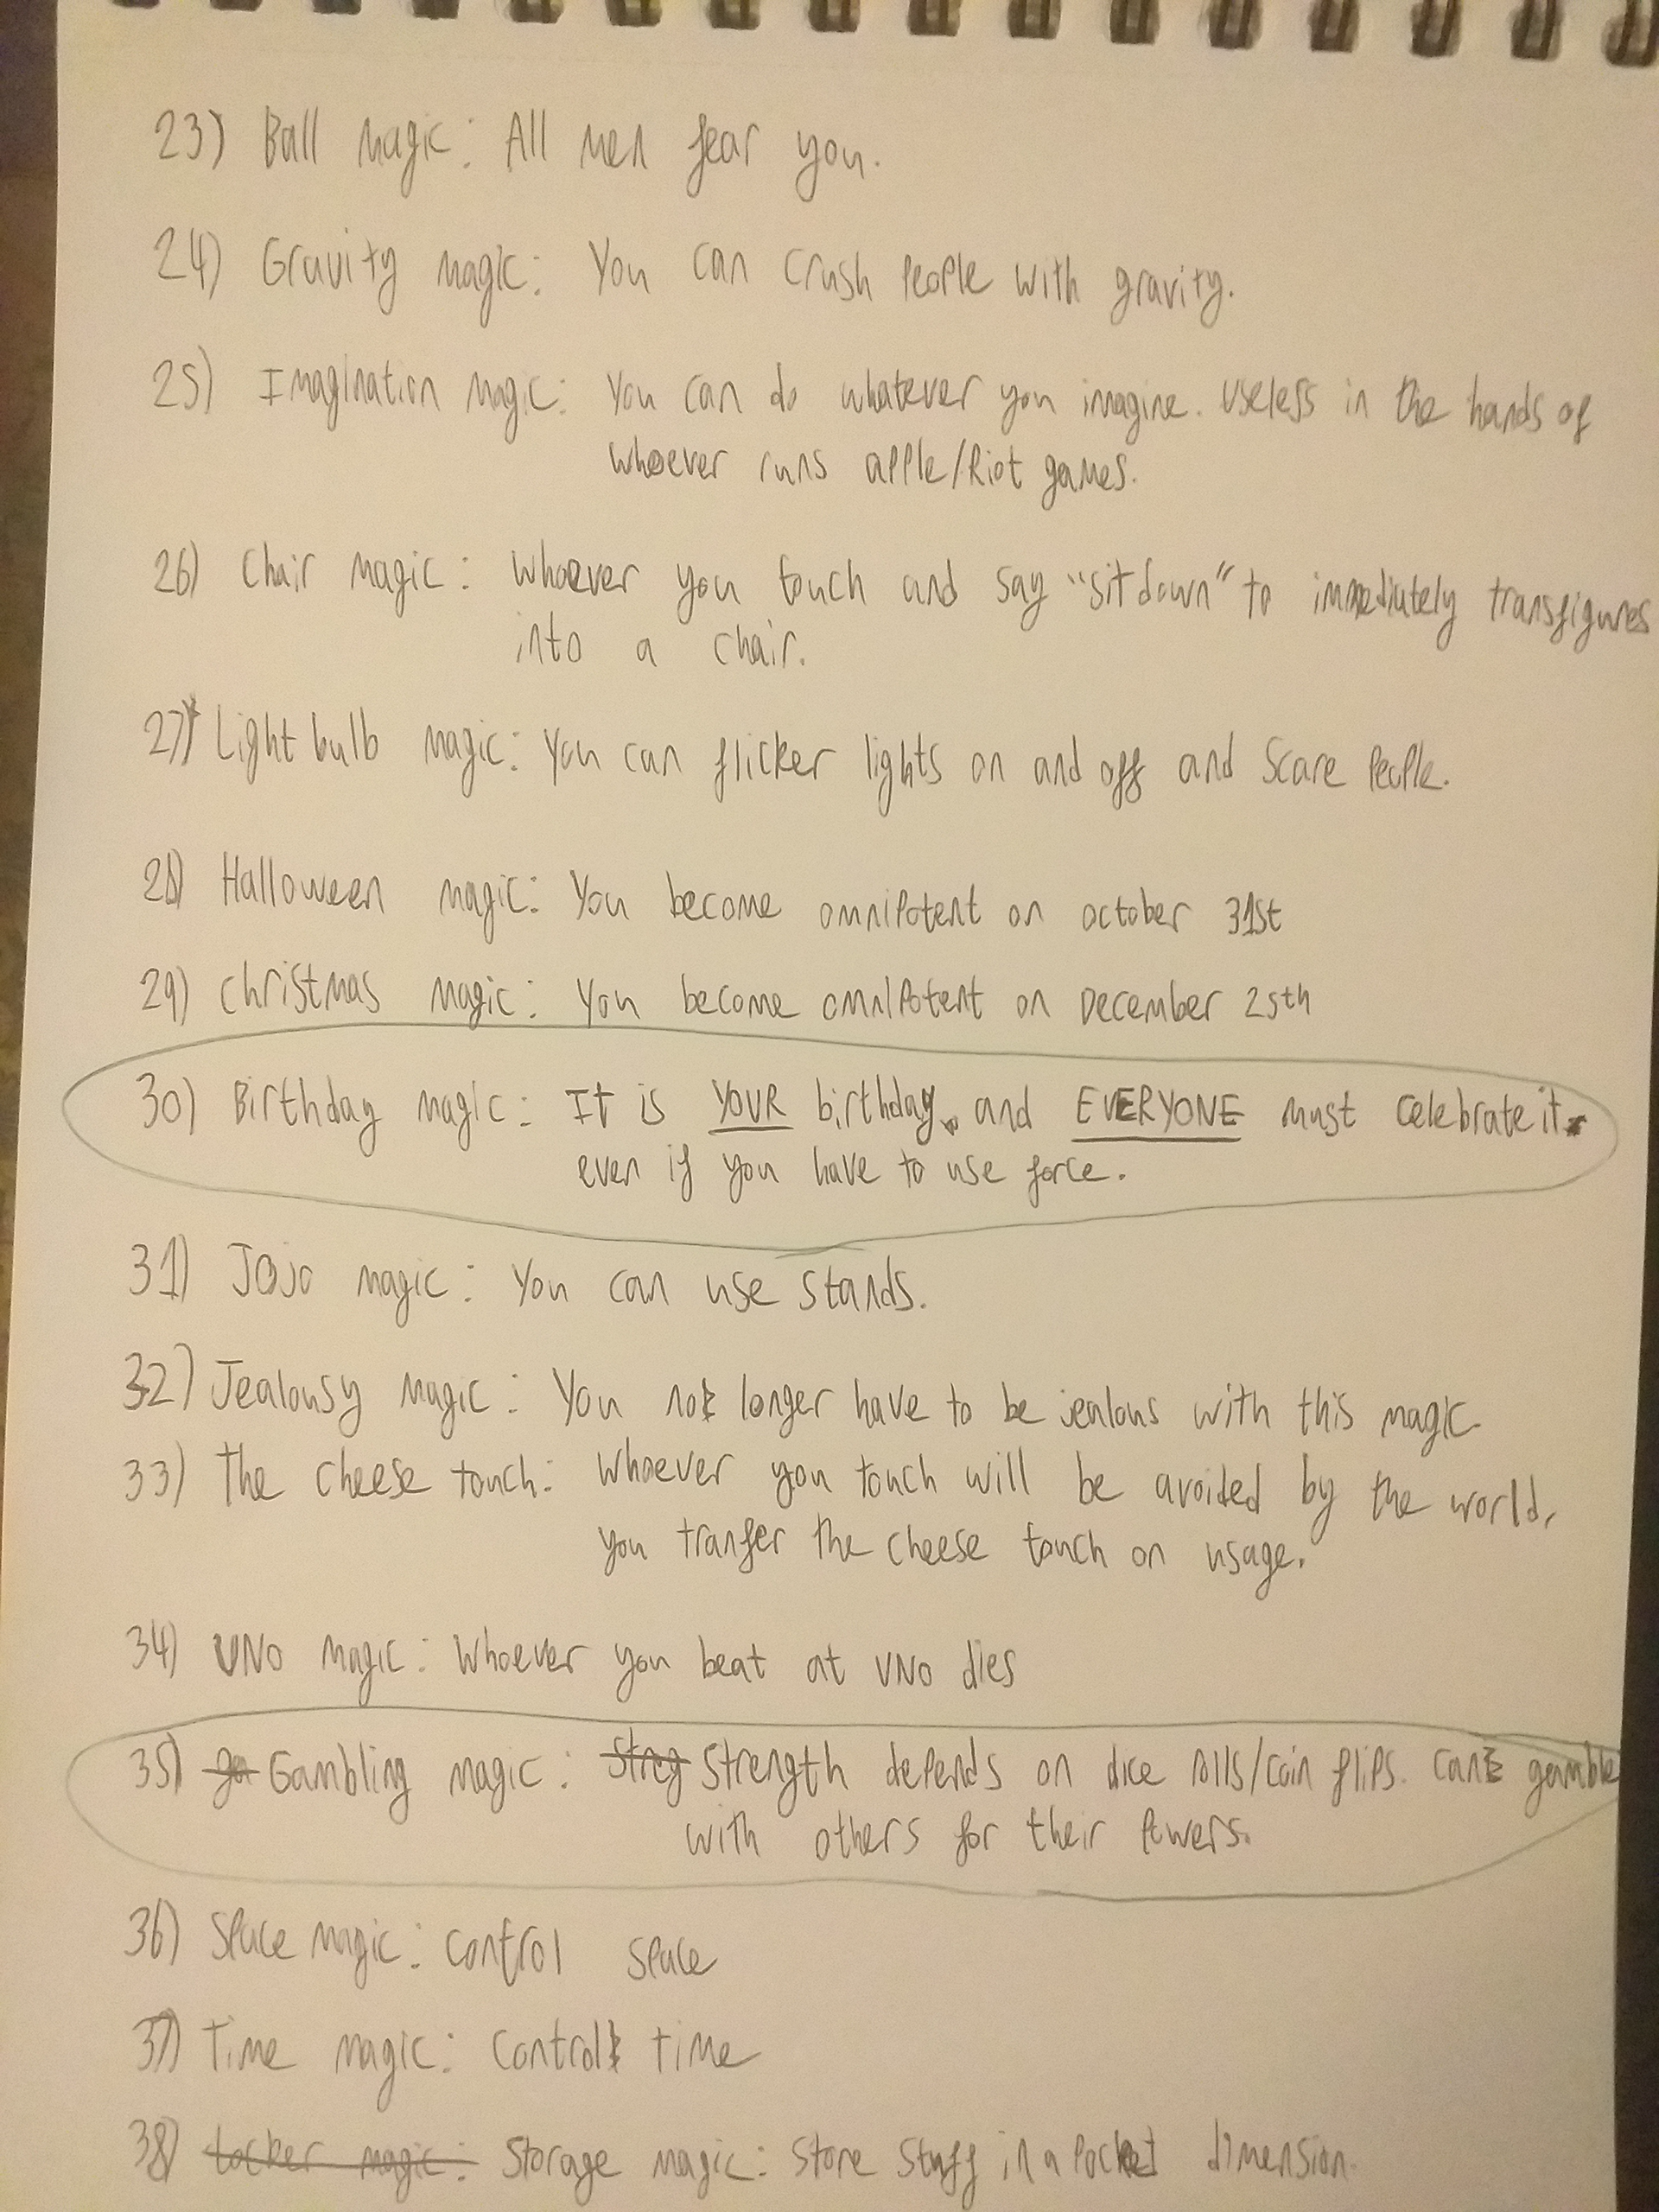 23) Ball magic: All men fear you.
24) Gravity magic: You can crush people with gravity.
25) Imagination magic: You can do whatever you imagine. Useless in the hands of
whoever runs apple/Riot games.
26) Chair magic: Whoever you touch and say "sit down" to immediately transfigures
into a chair.
27) Light bulb magic: You can flicker lights on and off and scare people.
28) Halloween magic: You become omnipotent on october 31st
29) Christmas magic: You become omnipotent on December 25th
30) Birthday magic: It is YOUR birthday, and EVERYONE must celebrate it
even if you have to use force.
31) JoJo magic: You can use stands.
32) Jealousy magic: You no longer have to be jealous with this magic
33) The cheese touch: Whoever you touch will be avoided by the world,
you tranfer the cheese touch on usage.
34) UNO magic: Whoever you beat at UNO dies
35) ga Gambling magic: Streg Strength depends on dice rolls/coin flips. Can gamble
with others for their powers.
36) Space magic: control space
37) Time magic: Control time
38) Locker magic: Storage magic: Store stuff in a pocket dimension.